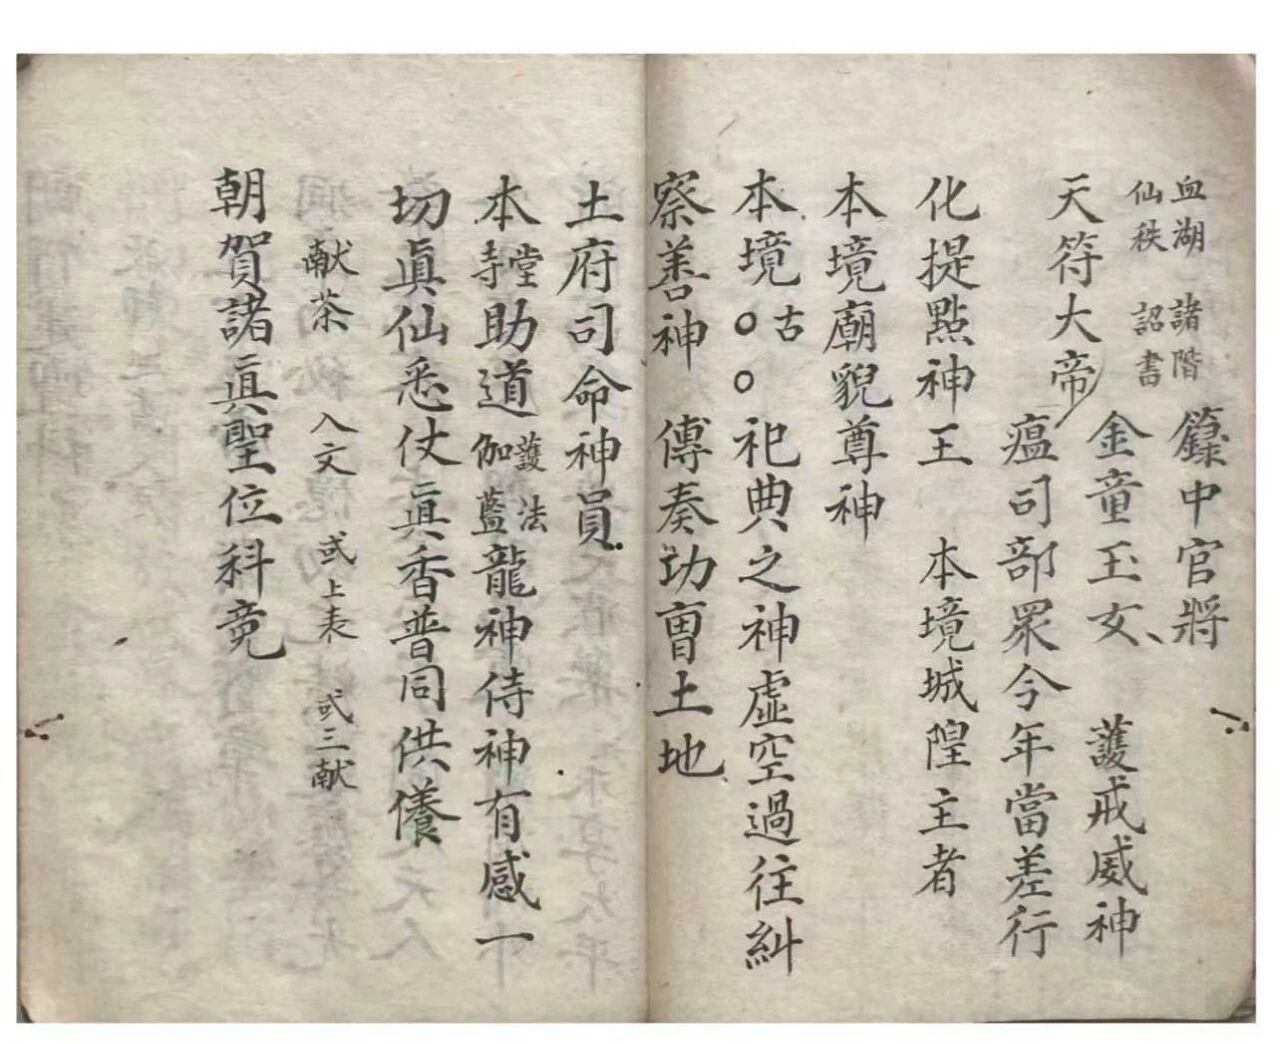 血湖 諸階
仙秩 詔書
籙中官將
金童玉女、 護戒威神
天符大帝
瘟司部眾今年當差行
化提點神王 本境城隍主者
本境廟貌尊神
本境古○○祀典之神虛空過往糾
察善神 傳奏功曺土地
土府司命神員
本堂寺助道護法伽藍龍神侍神有感一
切眞仙悉仗眞香普同供養
献茶 入文 或上表 或三献
朝賀諸眞聖位科竟